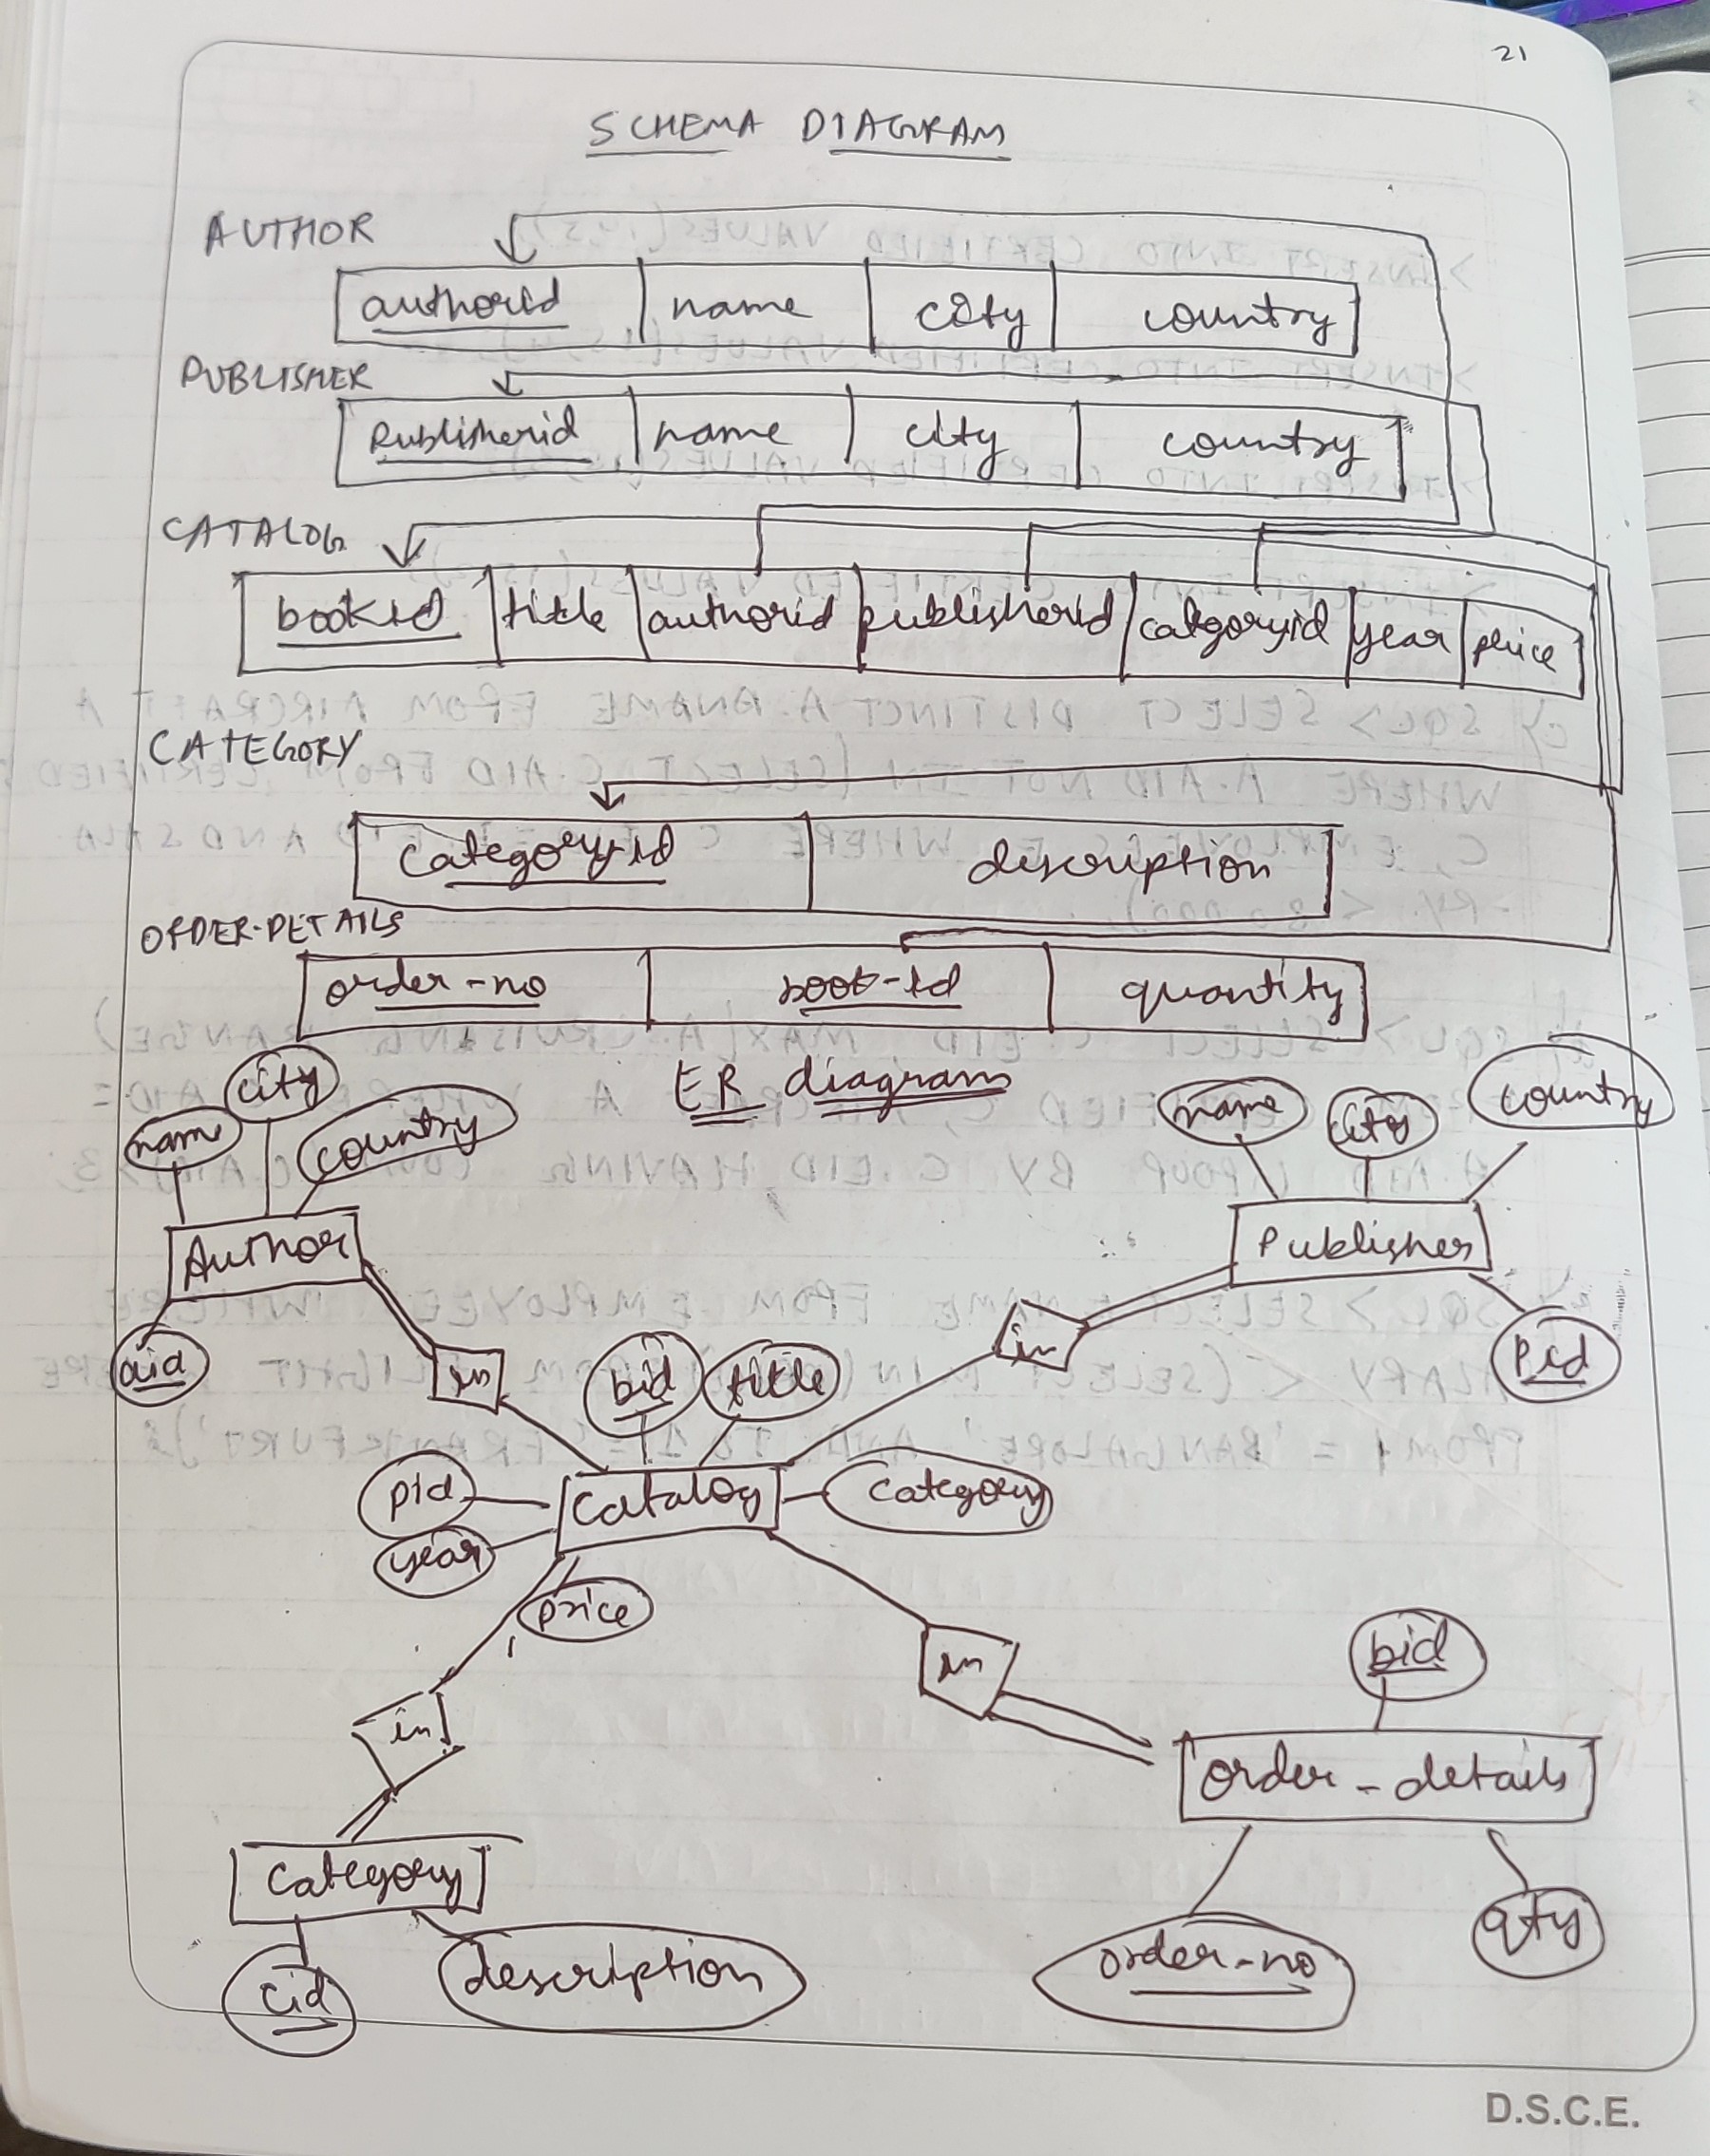 21
SCHEMA DIAGRAM
AUTHOR
authorid name city country
PUBLISHER
Publisherid name city country
CATALOG
bookid title authorid publisherid categoryid year price
CATEGORY
Categoryid description
ORDER-DETAILS
order-no book-id quantity
ER diagram
city
name country
name city country
Author
Publisher
aid
in
bid title
in
Pid
pid
Catalog
Category
year
price
in
bid
in
order-details
Category
cid
description
order-no
qty
D.S.C.E.